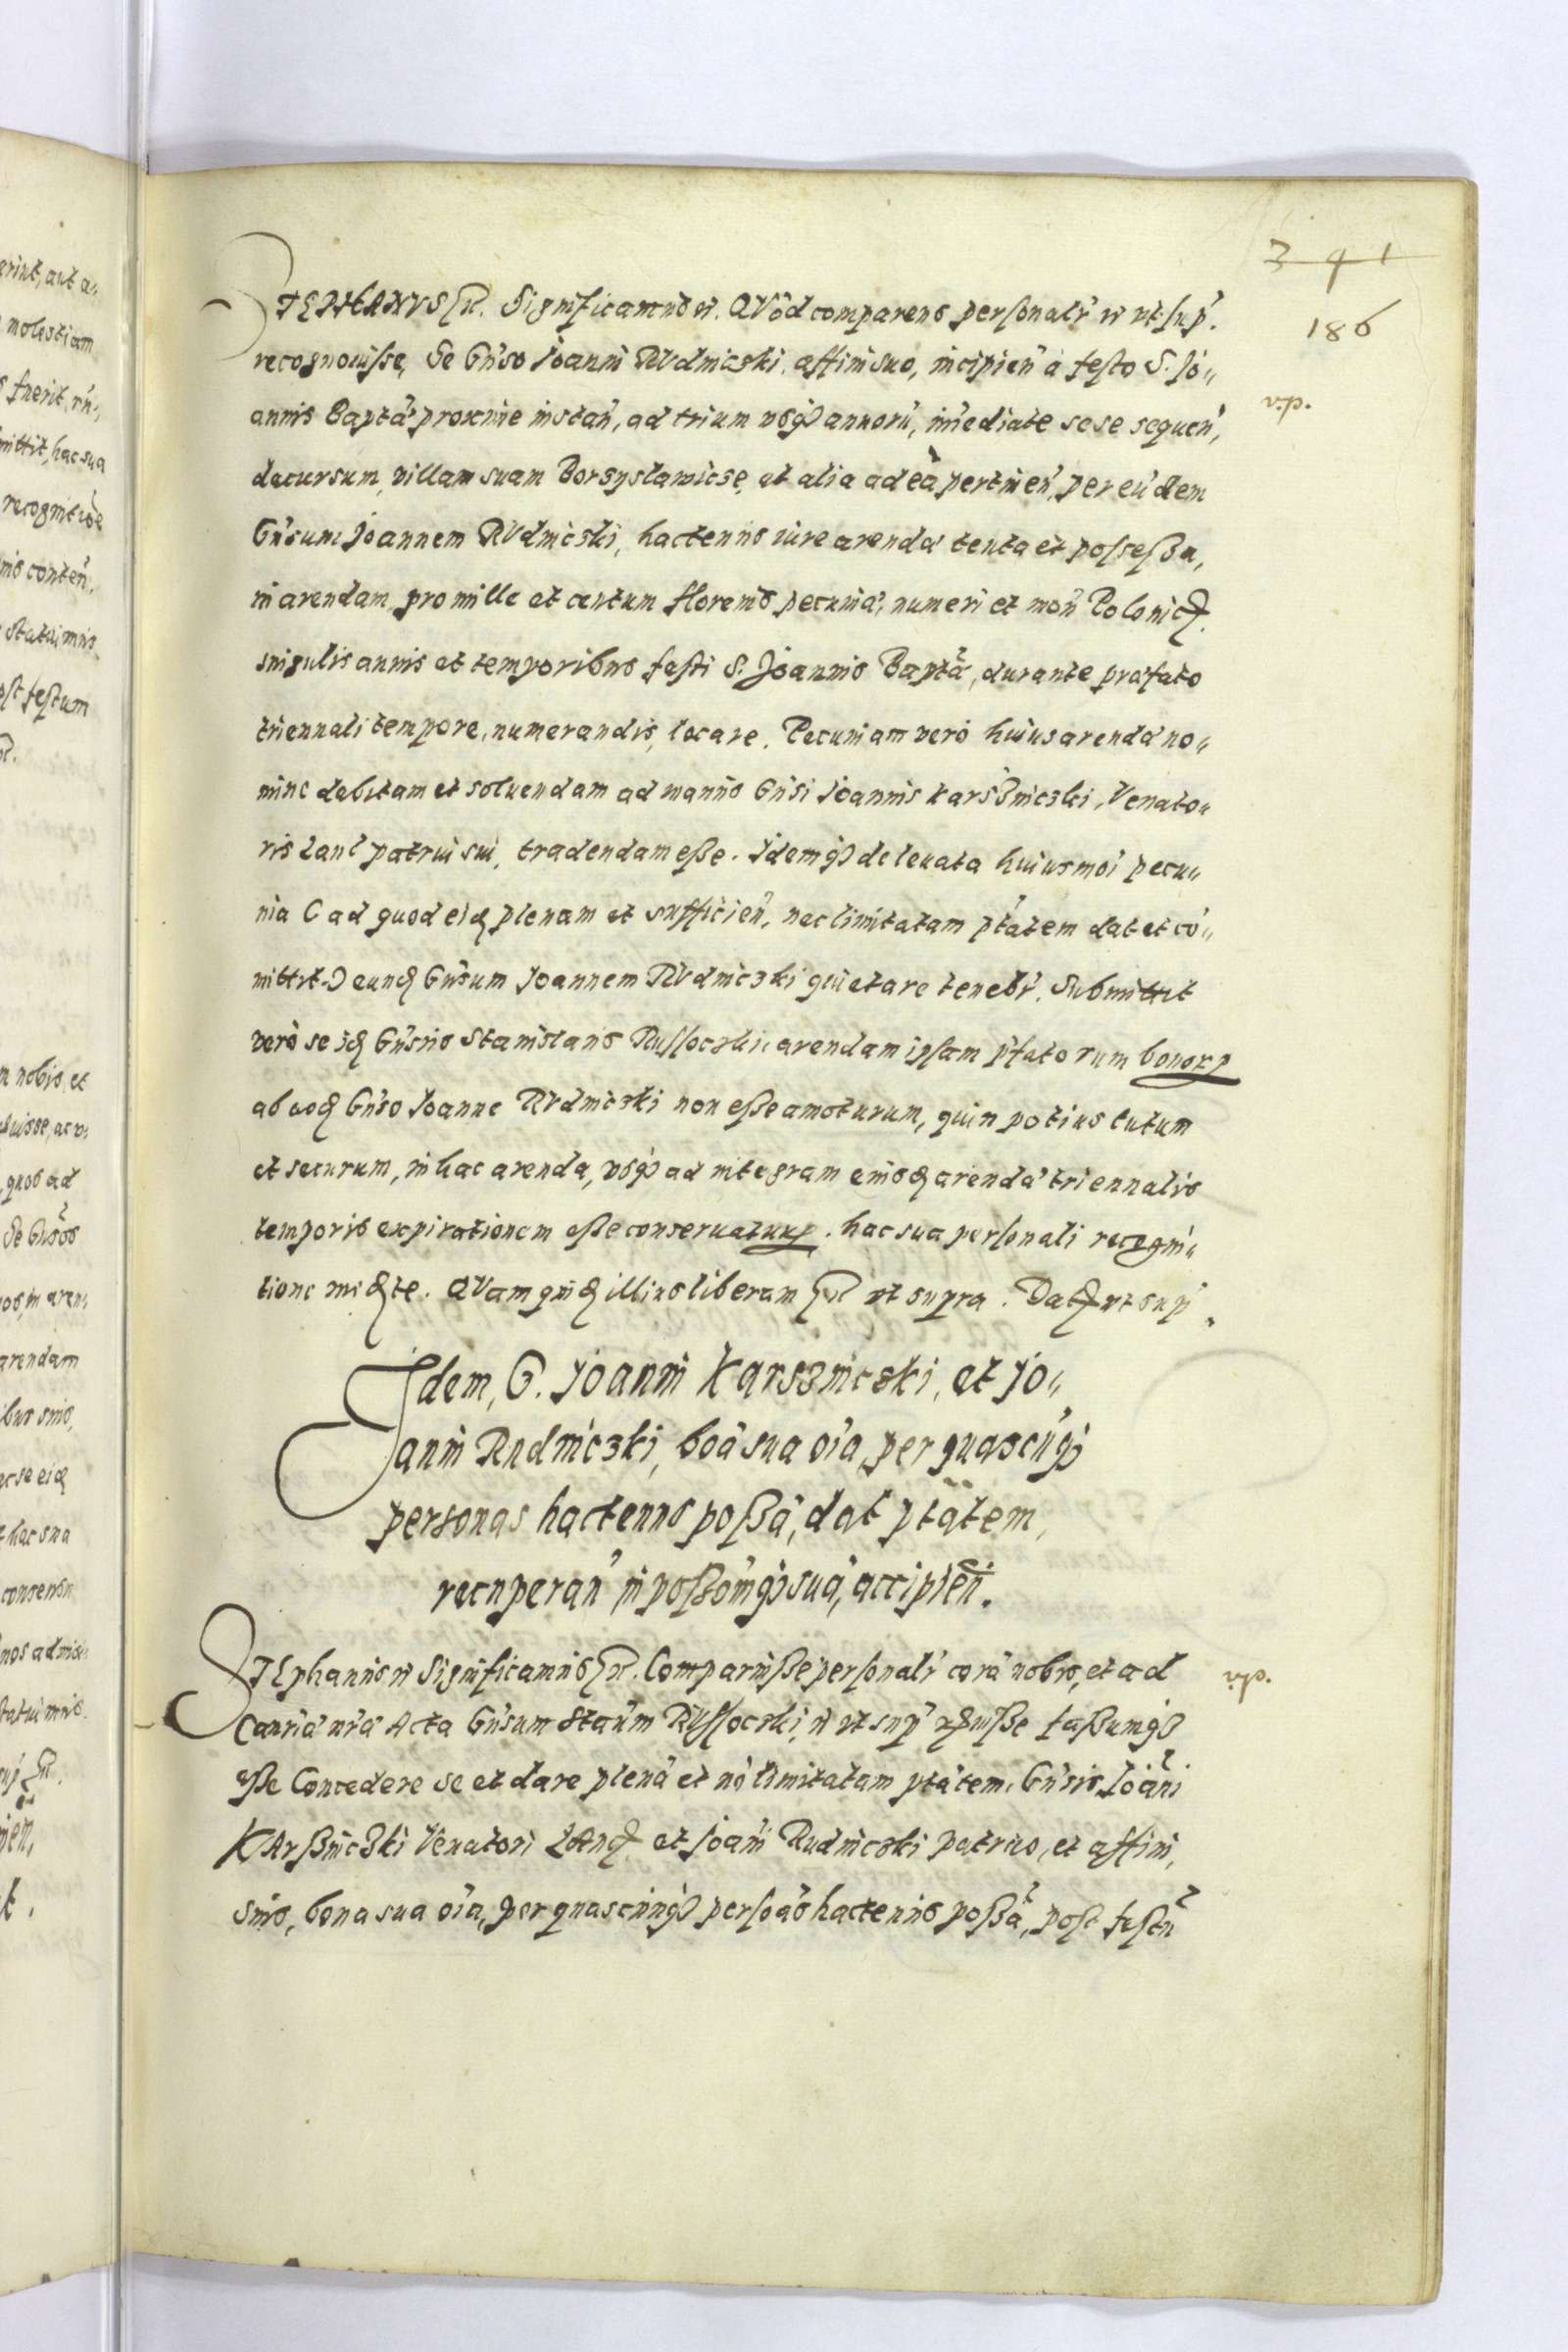 3 4 1
186
STEPHANVS etc. Significamus etc. QVod comparens personalr̃ etc. ut sup̃.
recognouisse, Se Gñso Joanni RVdniczki, affini suo, incipieñ à festo S. Jo„
annis Baptã proxime instañ, ad trium vsq annorũ, im̃ediate sese sequeñ,
decursum, villam suam Borzyslawicze, et alia ad eã pertineñ, per eũdem
Gñsum Joannem RVdniczki, hactenus iure arendæ tenta et possessa,
in arendam pro mille et centum florenis pecuniæ, numeri et moñ Polonic.
singulis annis et temporibus festi S. Joannis Baptã, durante præfato
triennali tempore, numerandis, locare. Pecuniam verò huius arendæ no„
mine debitam et soluendam ad manus Gñsi Joannis Karsßniczki, Venato„
ris Lanc patrui sui, tradendam esse. Idemq de leuata huiusmõi pecu„
nia ( ad quod eid plenam et sufficieñ, nec limitatam ptãtem dat et cõ„
mittit ) eund Gñsum Joannem RVdniczki quietare tenebr̃. Submittit
verò se id Gñsus Stanislaus Russoczki, arendam ipsam p̃fatorum bonor
ab eod Gñso Joanne RVdniczki non esse amoturum, quin potius tutum
et securum, in hac arenda, vsq ad integram eiusd arendæ triennalis
temporis expirationem esse conseruatur. hac sua personali recogni„
tione medte. QVam quid illius liberam etc ut supra. Dat ut sup̃.
.cia
Idem, G. Joanni Karszniczki, et Jo„
anni Rudniczki, boã sua oĩa, per quascũq
personas hactenus possã, dat ptãtem,
recuperañ in possõmq suã, accipieñ.
STEphanus etc Significamus etc. Comparuisse personalr̃ corã nobis, et ad
Canriæ nr̃æ Acta Gñsum Stañm RVssoczki, etc ut sup̃ rduisse fassumq
esse Concedere se et dare plenã et nõ limitatam ptãtem, Gñsis Joãni
KArßniczki Venatori LAnc et Joañi Rudniczki patruo, et affini,
suis, bona sua oĩa, per quascunq persoãs hactenus possã, post festũ
.cia